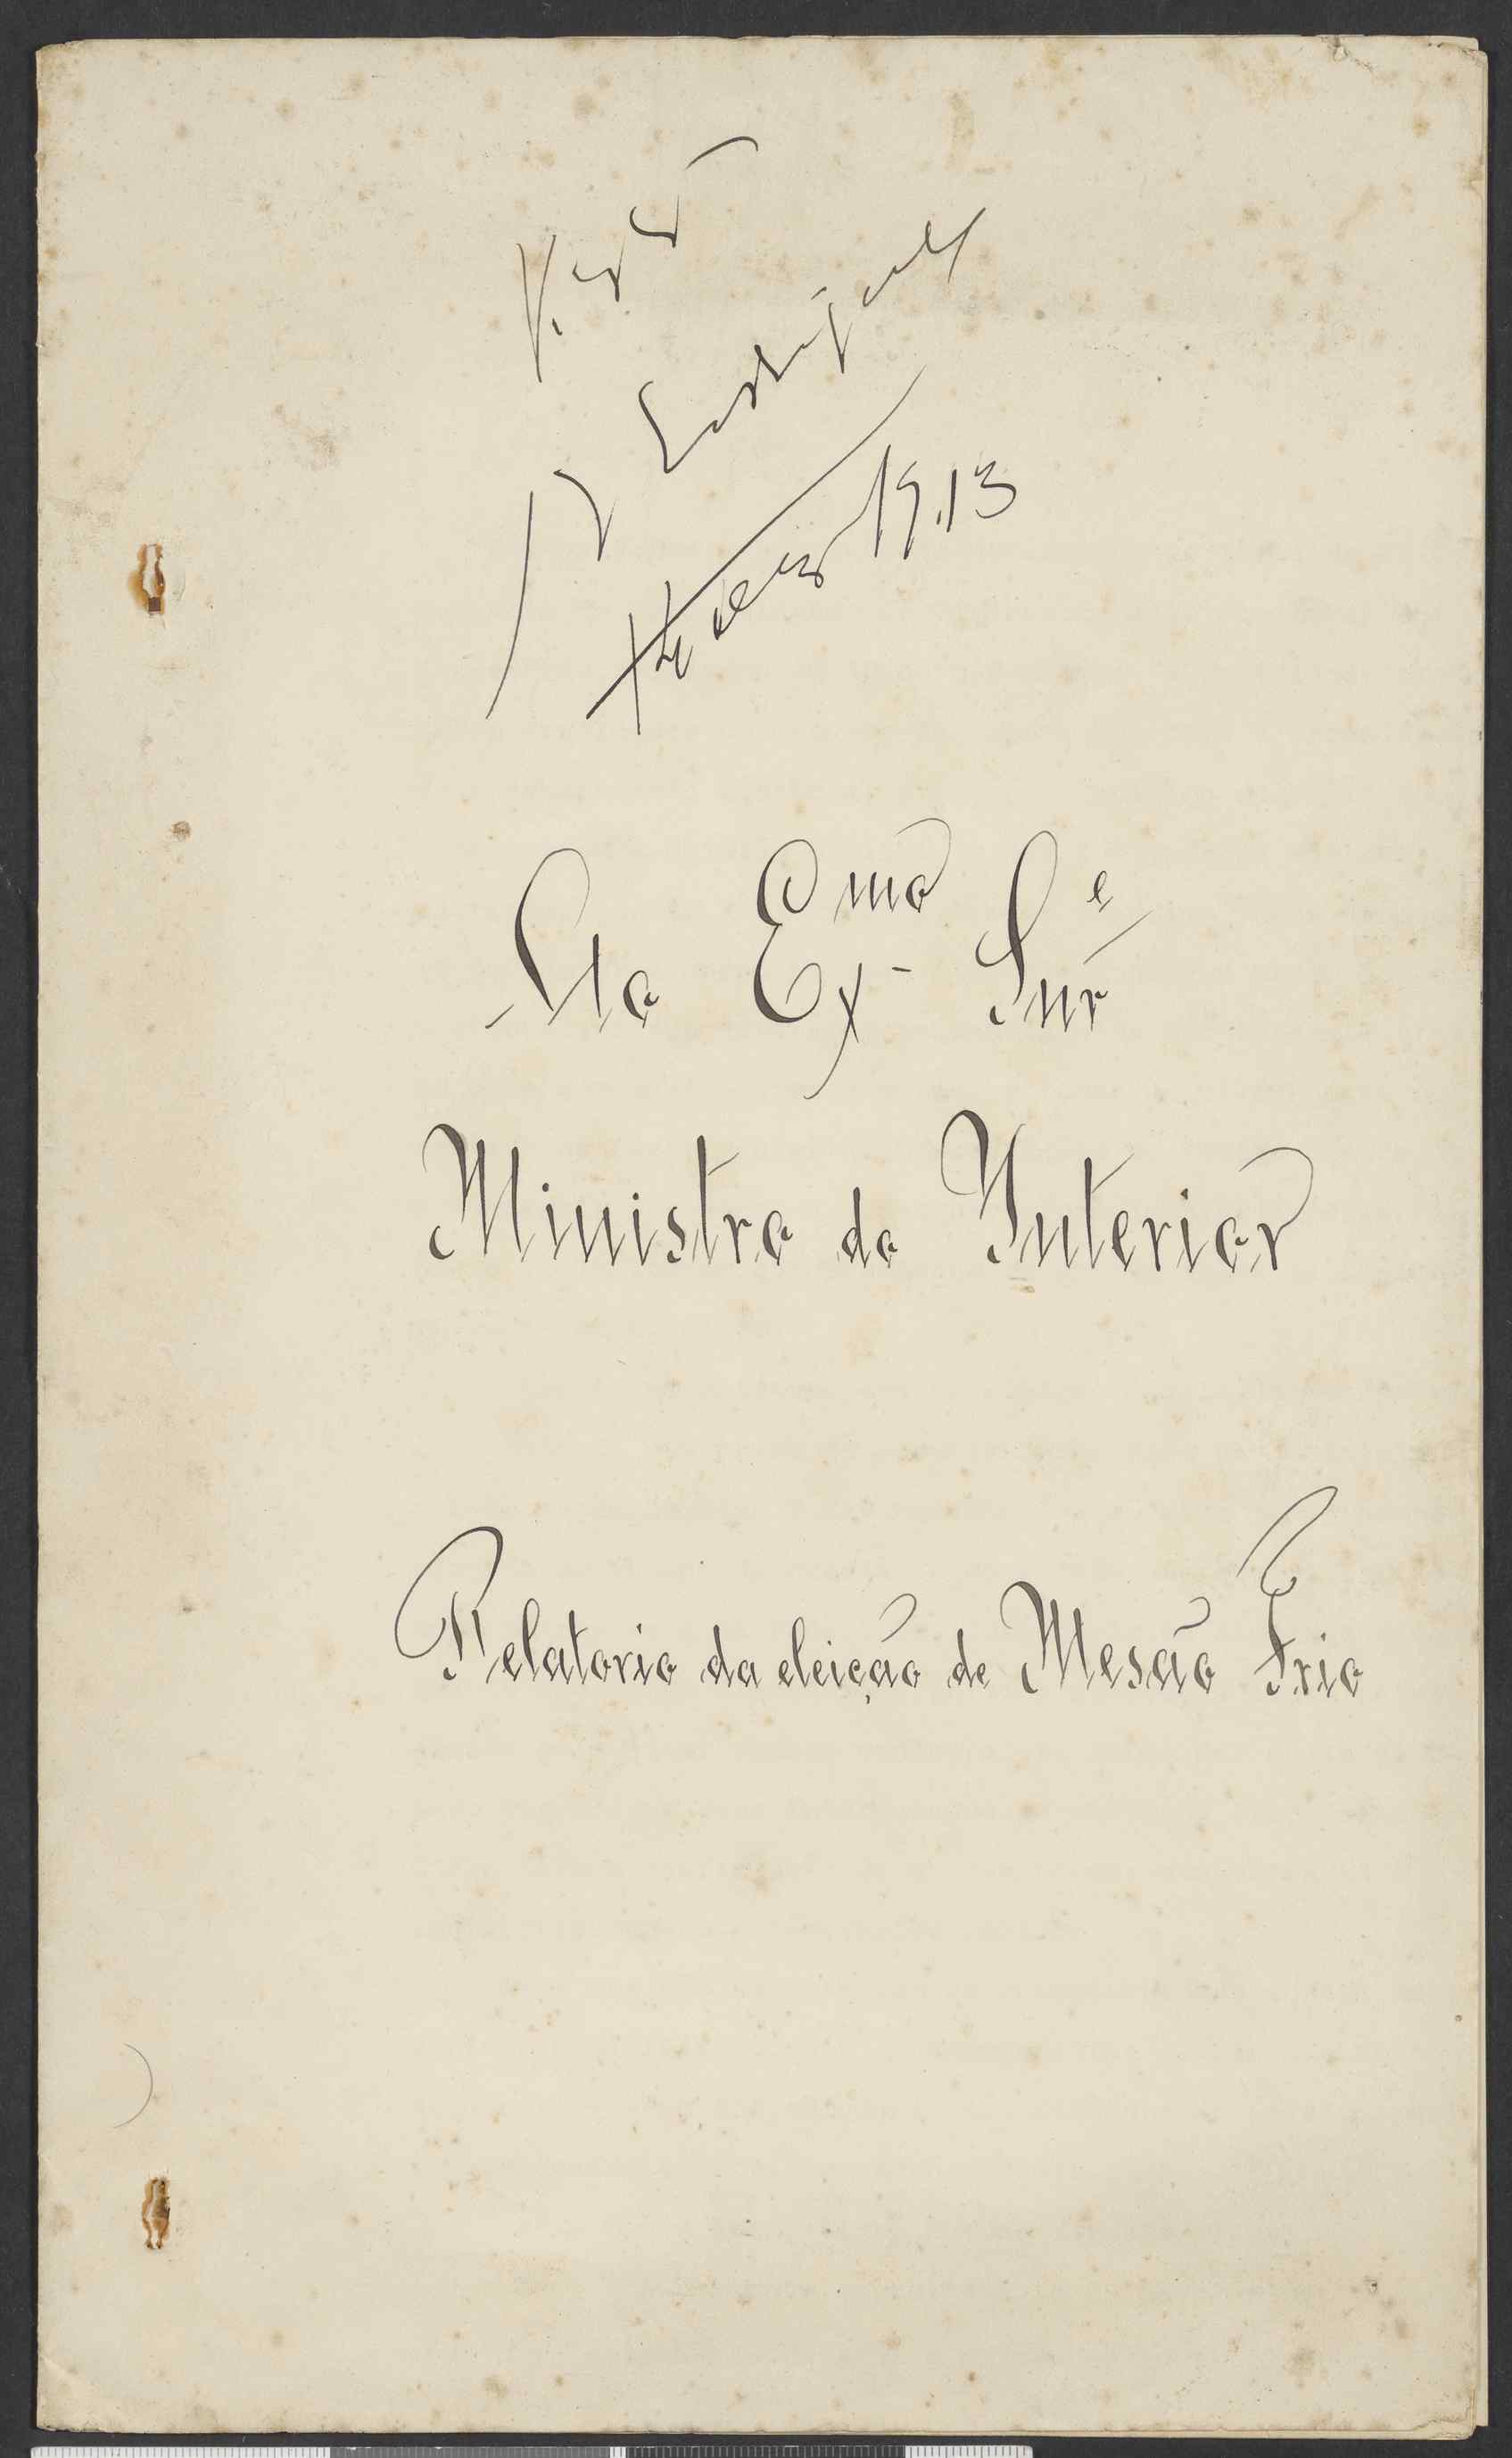 Visto
1913
Ao Exmo Snr
Ministro do Interior
Relatorio da eleição de Mesão Frio